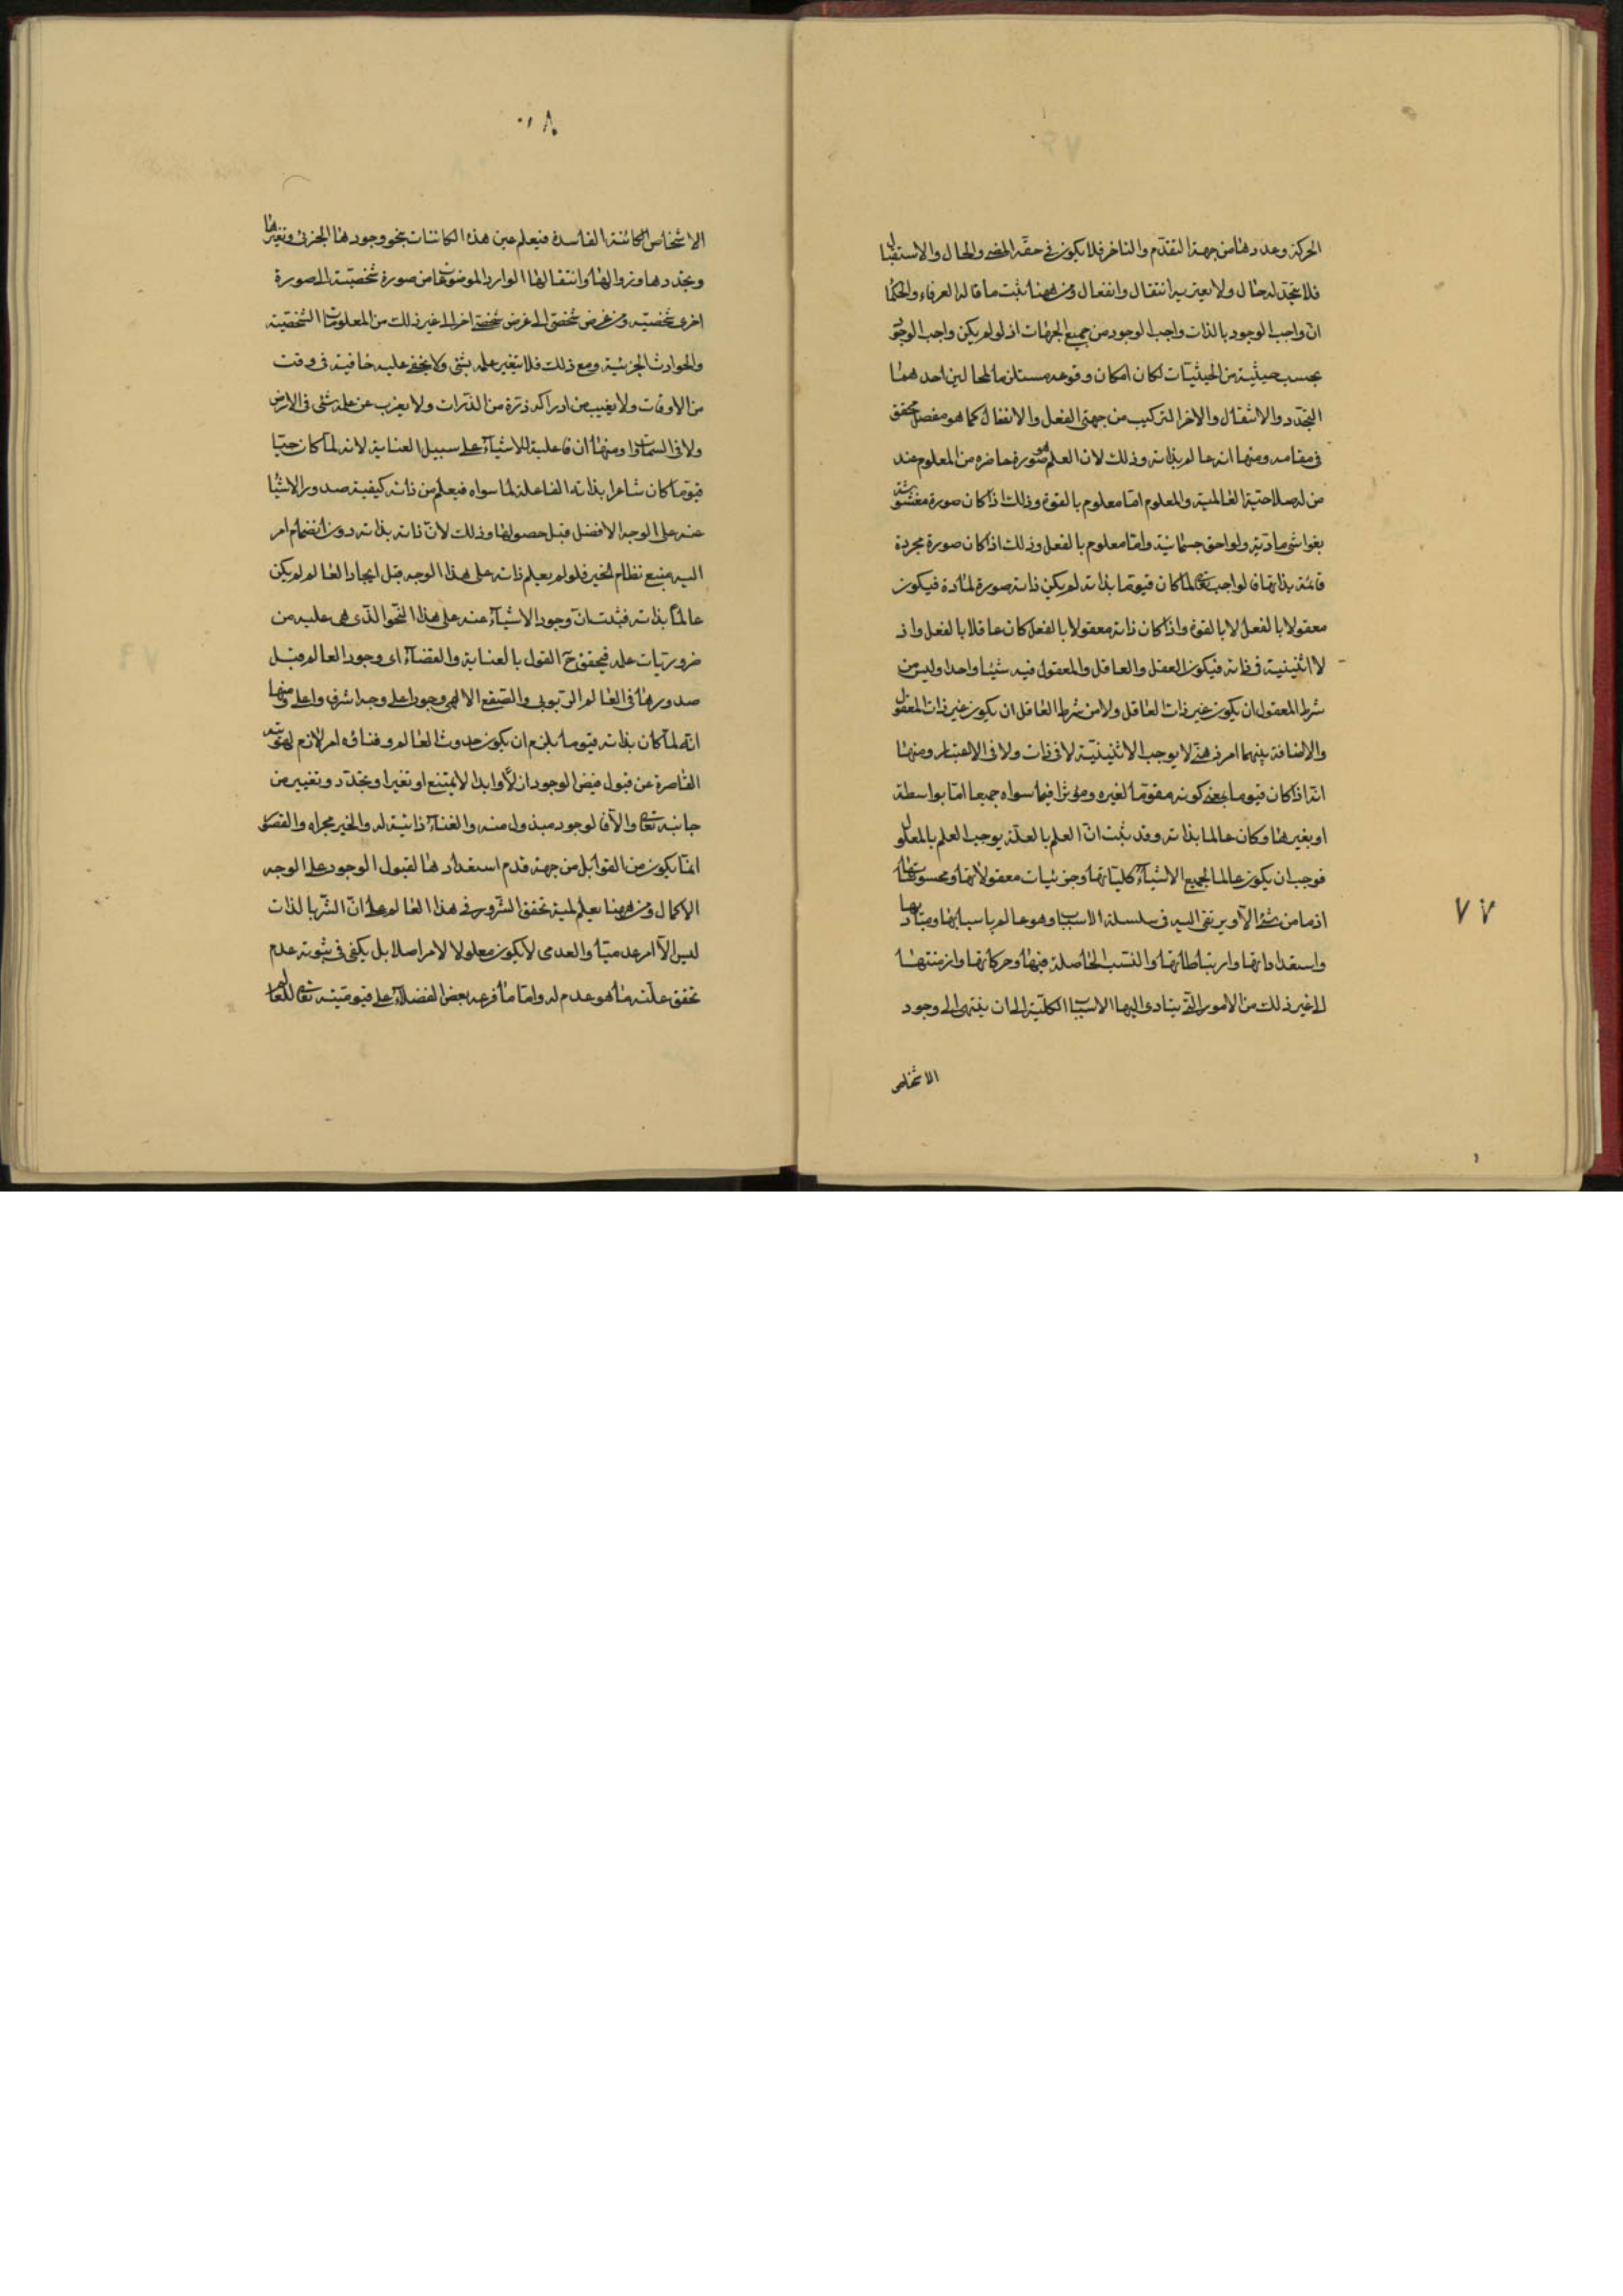 الحركة وعددها من جهة التقدّم والتاخر فلا يكون فى حقّه المضى والحال والاستقبال
فلا يتجدّد له حال ولا يعتريه انتقال وانفعال ومن ههنا ثبت ما قاله العرفاء والحكما
انّ واجب الوجود بالذات واجب الوجود من جميع الجهات اذ لو لم يكن واجب الوجود
بحسب حيثية من الحيثيّات لكان امكان وقوعه مستلزما لمحالين احدهما
التجدّد والانتقال والاخر التركيب من جهتى الفعل والانفعال كما هو مفصل محقق
فى مقامه ومنها انه عالم بذاته وذلك لان العلم هو صورة حاضره من المعلوم عند
من له صلاحية العالمية والمعلوم امّا معلوم بالقوة وذلك اذا كان صورة مغشوشة
بغواشى مادّية ولواحق جسمانية وامّا معلوم بالفعل وذلك اذا كان صورة مجردة
قائمة بذاتها فالواجب تعالى لما كان قيّوما بذاته لم يكن ذاته صورة لمادة فيكون
معقولا بالفعل لا بالقوة واذا كان ذاته معقولا بالفعل كان عاقلا بالفعل واذ
لا اثنينية فى ذاته فيكون العقل والعاقل والمعقول فيه شيئا واحدا وليس من
شرط المعقول ان يكون غير ذات العاقل ولا من شرط العاقل ان يكون غير ذات المعقول
والاضافة بينهما امر ذهنى لا يوجب الاثنينيّة لا فى ذات ولا فى الاعتبار ومنها
انّه اذا كان قيوما بمعنى كونه مقوّما لغيره ومؤثرا فيما سواه جميعا امّا بواسطة
او بغيرها وكان عالما بذاته وقد ثبت انّ العلم بالعلّة يوجب العلم بالمعلول
فوجب ان يكون عالما لجميع الاشيآء كلياتها وجزئيات معقولاتها ومحسوساتها
اذ ما من شئ الّا ويرتقى اليه فى سلسلة الاسباب وهو عالم باسبابها ومباديها
واستعداداتها وارتباطاتها والنسب الحاصلة فيها وحركاتها وازمنتها
الى غير ذلك من الامور الّتى يتادى اليها الاسباب الكلّية الى ان ينتهى الى وجود
الاشخاص
٧٧
٨٠
الاشخاص الكائنة الفاسدة فيعلم عين هذه الكائنات بنحو وجودها الجزئى وتغيرها
وتجددها وزوالها وانتقالها الوارد الموضوعها من صورة شخصيّة الى صورة
اخرى شخصيّه ومن عرض شخصى الى عرض شخصى اخر الى غير ذلك من المعلومات الشخصيّة
والحوادث الجزئية ومع ذلك فلا يتغير علمه بشئ ولا يخفى عليه خافية فى وقت
من الاوقات ولا يغيب من ادراكه ذرّة من الذّرات ولا يعزب عن علمه شئ فى الارض
ولا فى السموات ومنها ان فاعلية للاشيآء على سبيل العناية لانه لمّا كان حيّا
قيّوما كان شاعرا بذاته الفاعلة لما سواه فيعلم من ذاته كيفية صدور الاشيا
عنه على الوجه الافضل قبل حصولها وذلك لانّ ذاته بذاته دون انضمام امر
اليه منبع نظام الخير فلو لم يعلم ذاته على هذا الوجه قبل ايجاد العالم لم يكن
عالمًا بذاته فثبت انّ وجود الاشيآء عنه على هذا النّحو الّذى هى عليه من
ضروريّات علمه فيحقق ح القول بالعناية والقضآء اى وجود العالم قبل
صدورها فى العالم الرّبوبى والصّقع الالهى وجودا على وجه اشرف واعلى ومنها
انّه لمّا كان بذاته قيّوما يلزم ان يكون حدوث العالم وفناؤه امر لازم لهويته
القاصرة عن قبول فيض الوجود ازلًا وابدا لا يمتنع او تغيرا وتجدّد وتغيير من
جانبه تعالى والّا فالوجود مبذول منه والغنآء ذاتية له والخير مجراه والقصور
انّما يكون من القوابل من جهة قدم استعدادها لقبول الوجود على الوجه
الاكمال ومن ههنا يعلم لمية تحقق الشّرور فى هذا العالم على انّ الشّر بالذات
ليس الّا امر عدميّا والعدمى لا يكون معلولا لامر اصلا بل يكفى فى ثبوته عدم
تحقق علّته ما هو عدم له وامّا ما فرعه بعض الفضلآء على قيوميّته تعالى للعالم